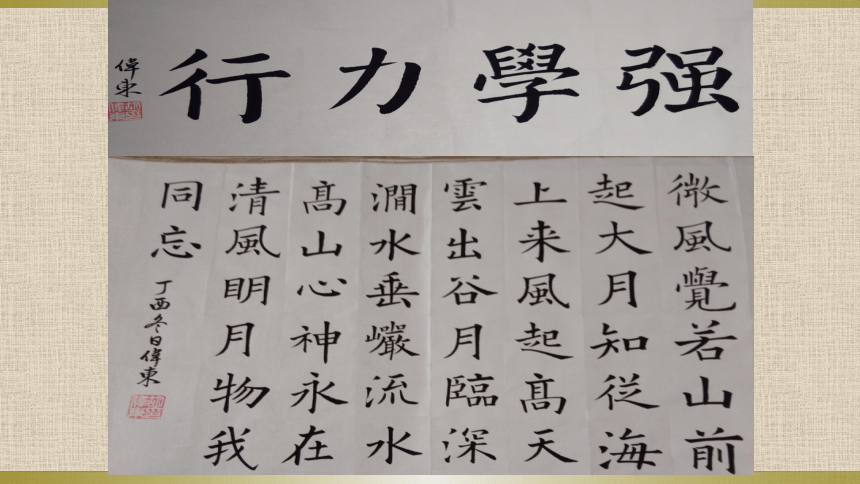 强學力行
偉東
微風覺若山前
起大月知從海
上来風起髙天
雲出谷月臨深
澗水垂巗流水
髙山心神永在
清風明月物我
同忘
丁酉冬日偉東